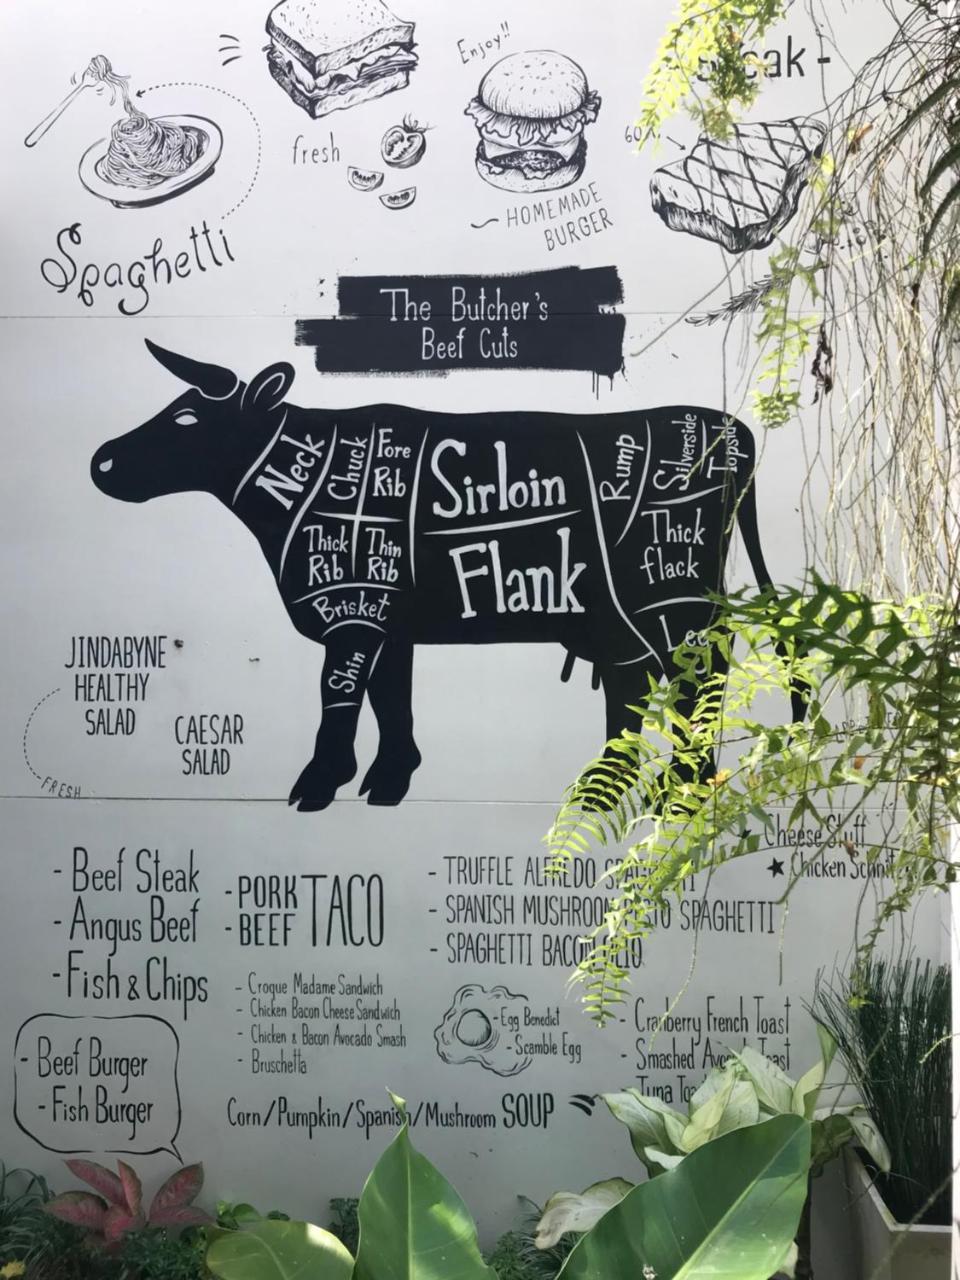 Enjoy!!
fresh
HOMEMADE
BURGER
Spaghetti
The Butcher's
Beef Cuts
Neck
Chuck
Fore
Rib
Sirloin
Rump
Silverside
Topside
Thick
Rib
Thin
Rib
Flank
Thick
flack
Brisket
Shin
Leg
JINDABYNE
HEALTHY
SALAD
FRESH
CAESAR
SALAD
Cheese Stuff
Chicken
- Beef Steak
- Angus Beef
- Fish & Chips
- Beef Burger
- Fish Burger
- PORK
- BEEF
TACO
- Croque Madame Sandwich
- Chicken Bacon Cheese Sandwich
- Chicken & Bacon Avocado Smash
- Bruschetta
- TRUFFLE ALFREDO SPAGHETTI
- SPANISH MUSHROOM PESTO SPAGHETTI
- SPAGHETTI BACON OLIO
- Egg Benedict
- Scamble Egg
- Cranberry French Toast
- Smashed Avocado Toast
Tuna Toast
Corn/Pumpkin/Spanish/Mushroom SOUP